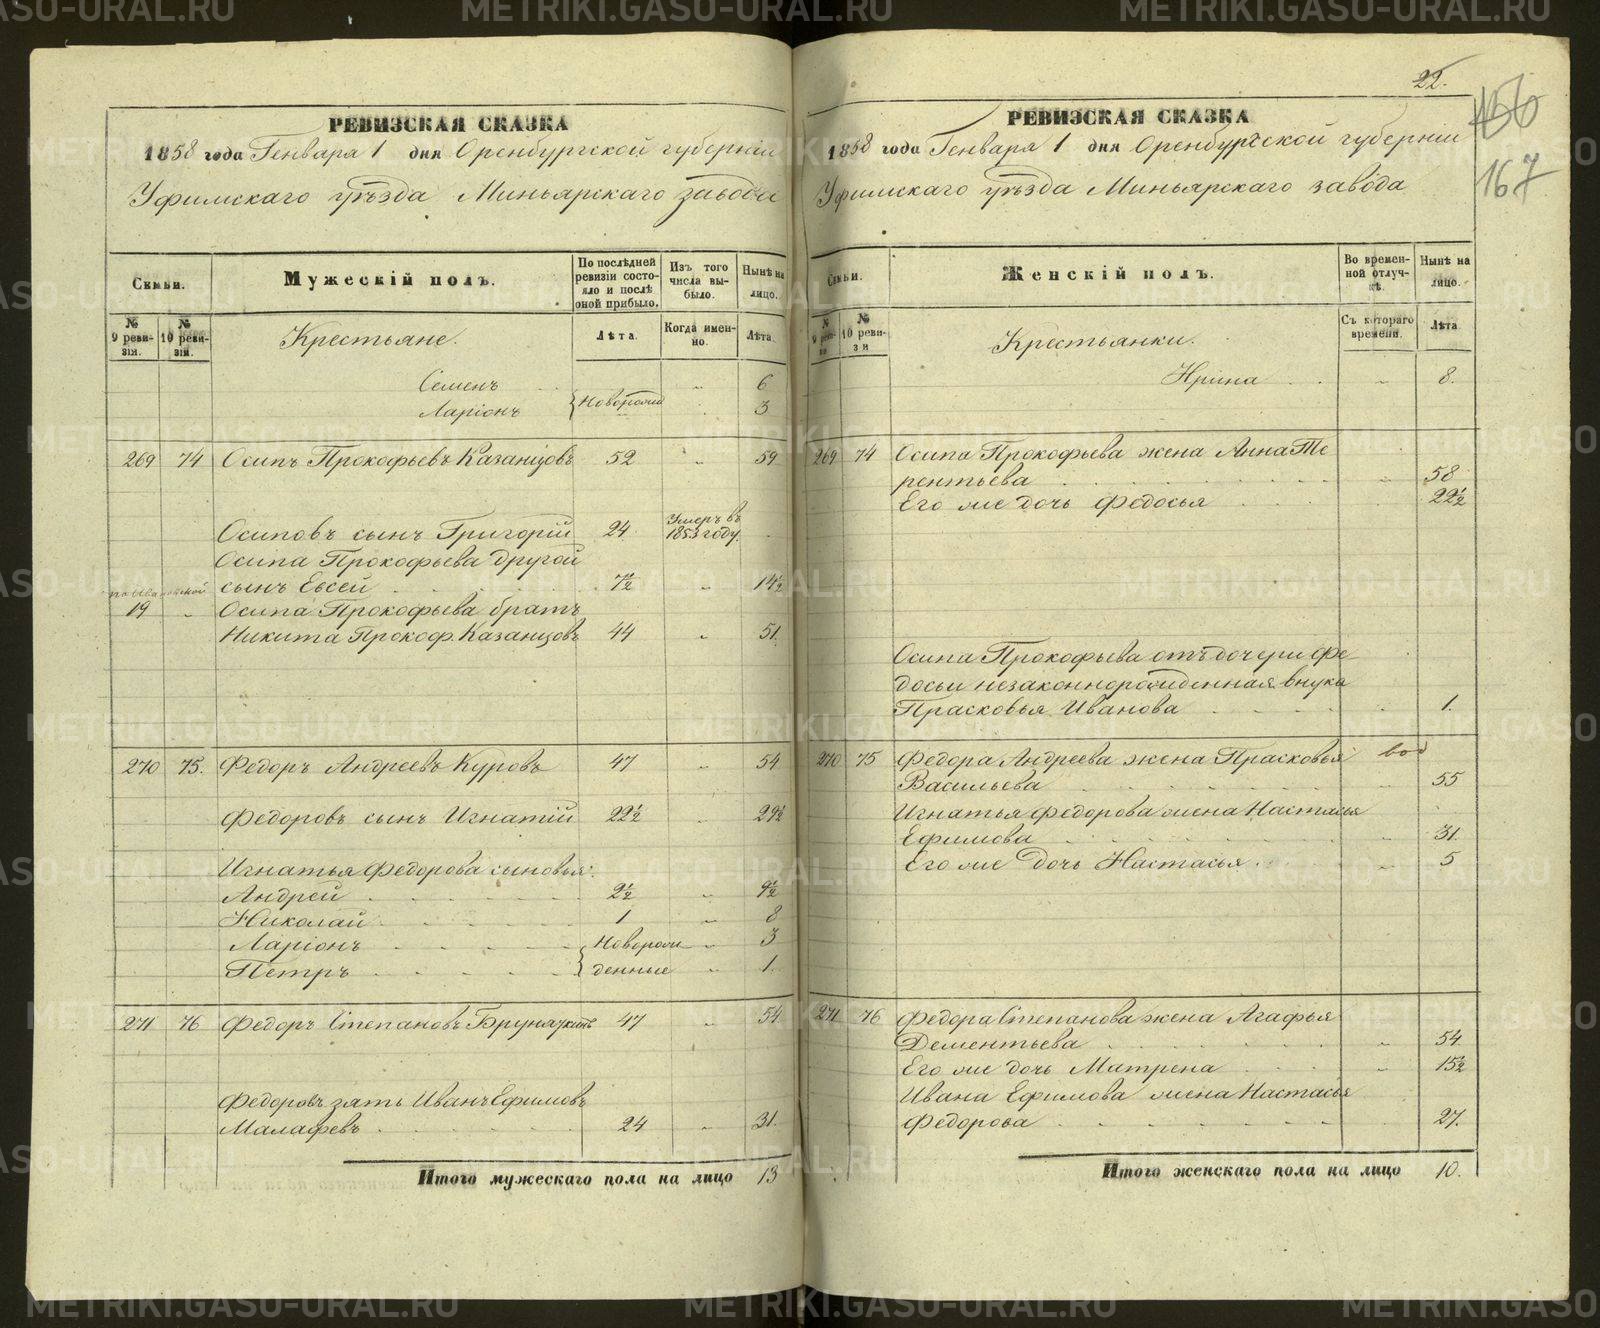 22.
156
167
РЕВИЗСКАЯ СКАЗКА
1858 года Генваря 1 дня Оренбургской губерніи
Уфимскаго уѣзда Миньярскаго завода
Семьи.
Мужескій полъ.
По послѣдней ревизіи состояло и послѣ оной прибыло.
Изъ того числа выбыло.
Нынѣ на лицо.
№ 9 ревизіи.
№ 10 ревизіи.
Крестьяне.
Лѣта.
Когда именно.
Лѣта.
Семенъ 6
Ларіонъ Новорожд 3
269 74 Осипъ Прокофьевъ Казанцовъ 52 „ 59
Осиповъ сынъ Григорій 24 Умеръ въ 1853 году.
Осипа Прокофьева другой
сынъ Евсей 7½ „ 14½
по Ивановской
19 „ Осипа Прокофьева братъ
Никита Прокоф. Казанцовъ 44 „ 51.
270 75. Федоръ Андреевъ Куровъ 47 „ 54
Федоровъ сынъ Игнатій 22½ „ 29½
Игнатья Федорова сыновья:
Андрей 2½ „ 9½
Николай 1 „ 8
Ларіонъ Новорож „ 3
Петръ денные „ 1.
271 76 Федоръ Степановъ 47 „ 54
Федоровъ зять Иванъ Ефимовъ
Малафеевъ 24 „ 31.
Итого мужескаго пола на лицо 13
РЕВИЗСКАЯ СКАЗКА
1858 года Генваря 1 дня Оренбургской губерніи
Уфимскаго уѣзда Миньярскаго завода
Семьи.
Женскій полъ.
Во временной отлучкѣ.
Нынѣ на лицо.
№ 9 ревизіи
№ 10 ревизіи
Крестьянки.
Съ котораго времени.
Лѣта.
Ирина „ 8.
269 74 Осипа Прокофьева жена Анна Те
рентьева „ 58
Его же дочь Федосья 22½
Осипа Прокофьева отъ дочери Фе
досьи незаконнорожденная внука
Прасковья Иванова „ 1.
270 75 Федора Андреева жена Прасковья
Васильева „ 55
Игнатья Федорова жена Настасья
Ефимова „ 31.
Его же дочь Настасья „ 5
271 76 Федора Степанова жена Агафья
Дементьева „ 54.
Его же дочь Матрена „ 15½
Ивана Ефимова жена Настасья
Федорова „ 27.
Итого женскаго пола на лицо 10.
METRIKI.GASO-URAL.RU